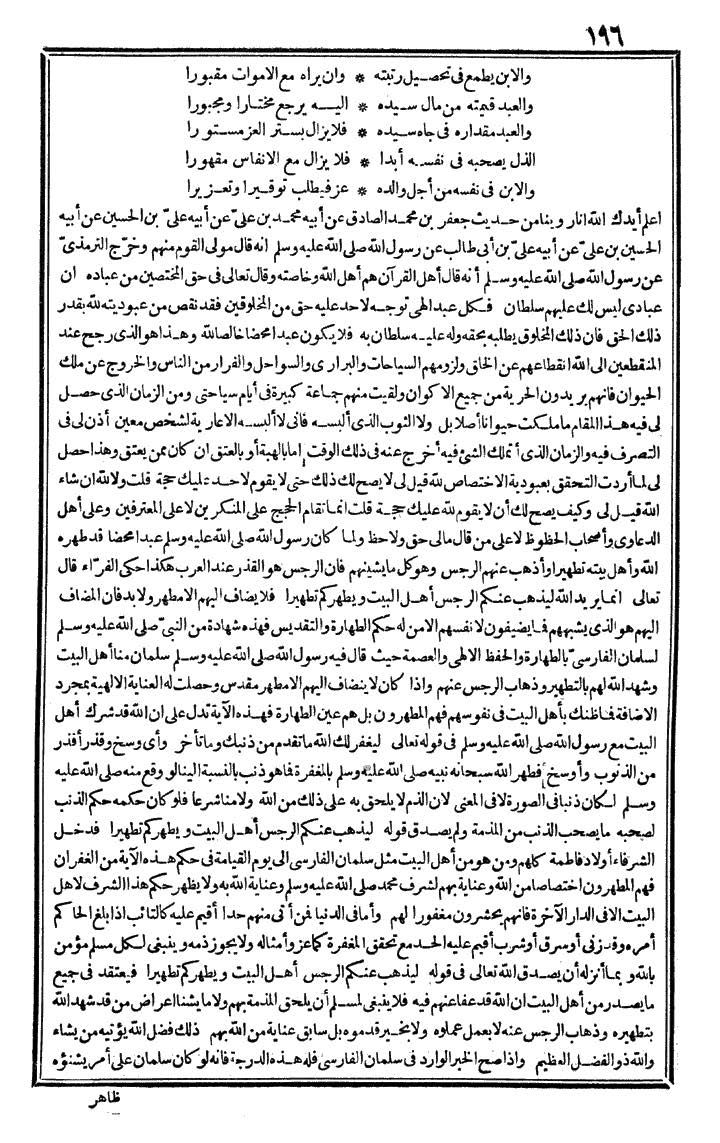 ١٩٦
والابن يطمع فى تحصيل رتبته * وان يراه مع الاموات مقبورا
والعبد قيمته من مال سيده * اليــه يرجع مختارا ومجبورا
والعبد مقداره فى جاه سيده * فلا يزال بستر العز مستورا
الذل يصحبه فى نفسه أبدا * فلا يزال مع الانفاس مقهورا
والابن فى نفسه من أجل والده * عز فيطلب توقيرا وتعزيرا
اعلم أيدك الله انا روينا من حديث جعفر بن محمد الصادق عن أبيه محمد بن علىّ عن أبيه علىّ بن الحسين عن أبيه
الحسين بن علىّ عن أبيه علىّ بن أبى طالب عن رسول الله صلى الله عليه وسلم انه قال مولى القوم منهم وخرّج الترمذىّ
عن رسول الله صلى الله عليه وسلم أنه قال أهل القرآن هم أهل الله وخاصته وقال تعالى فى حق المختصين من عباده ان
عبادى ليس لك عليهم سلطان فكل عبد الهى توجه لاحد عليه حق من المخلوقين فقد نقص من عبوديته لله بقدر
ذلك الحق فان ذلك المخلوق يطلبه بحقه وله عليه سلطان به فلا يكون عبدا محضا خالصا لله وهذا هو الذى رجح عند
المنقطعين الى الله انقطاعهم عن الخلق ولزومهم السياحات والبرارى والسواحل والفرار من الناس والخروج عن ملك
الحيوان فانهم يريدون الحرية من جميع الاكوان ولقيت منهم جماعة كبيرة فى أيام سياحتى ومن الزمان الذى حصل
لى فيه هذا المقام ما ملكت حيوانا أصلا بل ولا الثوب الذى ألبسه فانى لا ألبسه الا عارية لشخص معين أذن لى فى
التصرف فيه والزمان الذى أتملك الشئ فيه أخرج عنه فى ذلك الوقت اما بالهبة أو بالعتق ان كان ممن يعتق وهذا حصل
لى لما أردت التحقق بعبودية الاختصاص لله قيل لى لا يصح لك ذلك حتى لا يقوم لاحد عليك حجة قلت ولا لله ان شاء
الله قيل لى وكيف يصح لك أن لا يقوم لله عليك حجة قلت انما تقام الحجج على المنكرين لا على المعترفين وعلى أهل
الدعاوى وأصحاب الحظوظ لا على من قال مالى حق ولاحظ ولما كان رسول الله صلى الله عليه وسلم عبدا محضا قد طهره
الله وأهل بيته تطهيرا وأذهب عنهم الرجس وهو كل ما يشينهم فان الرجس هو القذر عند العرب هكذا حكى الفرّاء قال
تعالى انما يريد الله ليذهب عنكم الرجس أهل البيت ويطهركم تطهيرا فلا يضاف اليهم الا مطهر ولا بد فان المضاف
اليهم هو الذى يشبههم فما يضيفون لانفسهم الا من له حكم الطهارة والتقديس فهذه شهادة من النبىّ صلى الله عليه وسلم
لسلمان الفارسىّ بالطهارة والحفظ الالهى والعصمة حيث قال فيه رسول الله صلى الله عليه وسلم سلمان منا أهل البيت
وشهد الله لهم بالتطهير وذهاب الرجس عنهم واذا كان لا ينضاف اليهم الا مطهر مقدس وحصلت له العناية الالهية بمجرد
الاضافة فما ظنك بأهل البيت فى نفوسهم فهم المطهرون بل هم عين الطهارة فهذه الآية تدل على ان الله قد شرك أهل
البيت مع رسول الله صلى الله عليه وسلم فى قوله تعالى ليغفر لك الله ما تقدم من ذنبك وما تأخر وأى وسخ وقذر أقذر
من الذنوب وأوسخ فطهر الله سبحانه نبيه صلى الله عليه وسلم بالمغفرة فما هو ذنب بالنسبة الينا لو وقع منه صلى الله عليه
وسلم لكان ذنبا فى الصورة لا فى المعنى لان الذم لا يلحق به على ذلك من الله ولا منا شرعا فلو كان حكمه حكم الذنب
لصحبه ما يصحب الذنب من المذمة ولم يصدق قوله ليذهب عنكم الرجس أهل البيت ويطهركم تطهيرا فدخل
الشرفاء أولاد فاطمة كلهم ومن هو من أهل البيت مثل سلمان الفارسى الى يوم القيامة فى حكم هذه الآية من الغفران
فهم المطهرون اختصاصا من الله وعناية بهم لشرف محمد صلى الله عليه وسلم وعناية الله به ولا يظهر حكم هذا الشرف لاهل
البيت الا فى الدار الآخرة فانهم يحشرون مغفورا لهم وأما فى الدنيا فمن أتى منهم حدا أقيم عليه كالتائب اذا بلغ الحاكم
أمره وقد زنى أو سرق أو شرب أقيم عليه الحد مع تحقق المغفرة كماعز وأمثاله ولا يجوز ذمه وينبغى لكل مسلم مؤمن
بالله وبما أنزله أن يصدق الله تعالى فى قوله ليذهب عنكم الرجس أهل البيت ويطهركم تطهيرا فيعتقد فى جميع
ما يصدر من أهل البيت ان الله قد عفا عنهم فيه فلا ينبغى لمسلم أن يلحق المذمة بهم ولا ما يشنأ اعراض من قد شهد الله
بتطهيره وذهاب الرجس عنه لا بعمل عملوه ولا بخير قدموه بل سابق عناية من الله بهم ذلك فضل الله يؤتيه من يشاء
والله ذو الفضل العظيم واذا صح الخبر الوارد فى سلمان الفارسى فله هذه الدرجة فانه لو كان سلمان على أمر يشنؤه
ظاهر